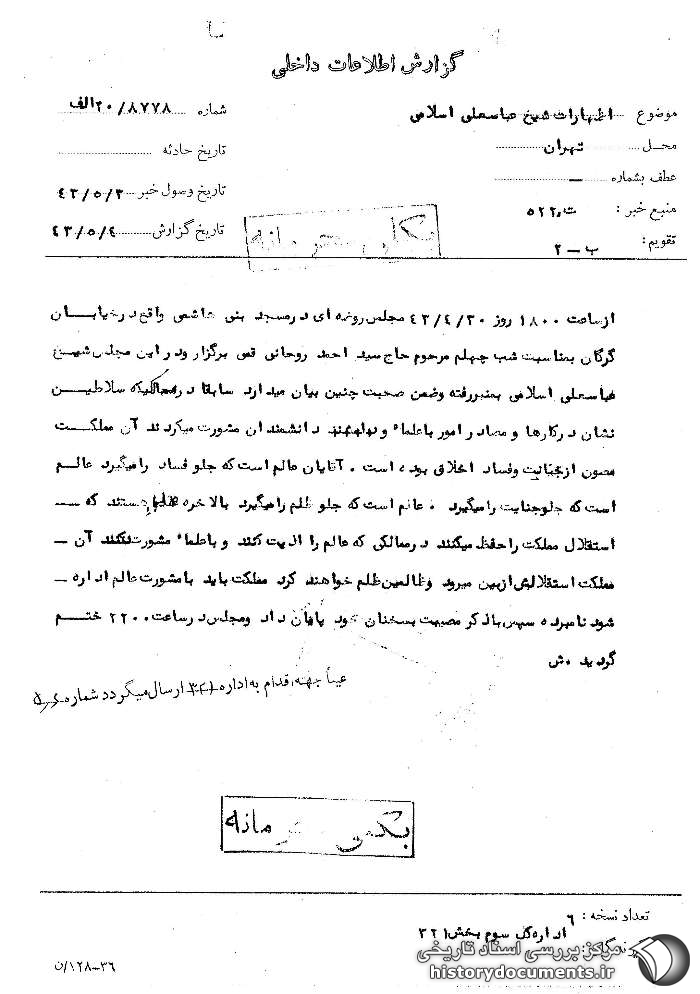 گزارش اطلاعات داخلی
موضوع اظهارات شیخ عباسعلی اسلامی
شماره ۲۰/۸۷۷۸الف
محل تهران
تاریخ حادثه
عطف بشماره —
تاریخ وصول خبر ۴۳/۵/۳
منبع خبر: ت.۵۲۲
تاریخ گزارش ۴۳/۵/۴
تقویم: ب - ۲
بکلی محرمانه
ازساعت ۱۸۰۰ روز ۴۳/۴/۳۰ مجلس روضه ای درمسجد بنی هاشمی واقع درخیابان
گرگان بمناسبت شب چهلم مرحوم حاج سید احمد روحانی قمی برگزار ودر این مجلس شیخ
عباسعلی اسلامی بمنبررفته وضمن صحبت چنین بیان میدارد سابقا درممالکیکه سلاطین
نشان درکارها و مصادر امور باعلماء و دانشمندان مشورت میکردند آن مملکت
مصون ازجنایت وفساد اخلاق بوده است . آقایان عالم است که جلو فساد رامیگیرد عالم
است که جلوجنایت رامیگیرد . عالم است که جلو ظلم رامیگیرد بالاخره علما هستند که —
استقلال مملکت راحفظ میکنند درممالکی که عالم را اذیت کنند و باعلماء مشورت نکنند آن —
مملکت استقلالش ازبین میرود وظالمین ظلم خواهند کرد مملکت باید بامشورت عالم اداره —
شود نامبرده سپس باذکر مصیبت بسخنان خود پایان داد ومجلس درساعت ۲۲۰۰ ختم
گردید .ش
عیناً جهت اقدام به اداره ۳۲۱ ارسال میگردد شماره
بکلی محرمانه
تعداد نسخه: ۶
اداره کل سوم بخش ۳۲۱
۱۲۸-۳۶/ن
مرکز بررسی اسناد تاریخی
historydocuments.ir